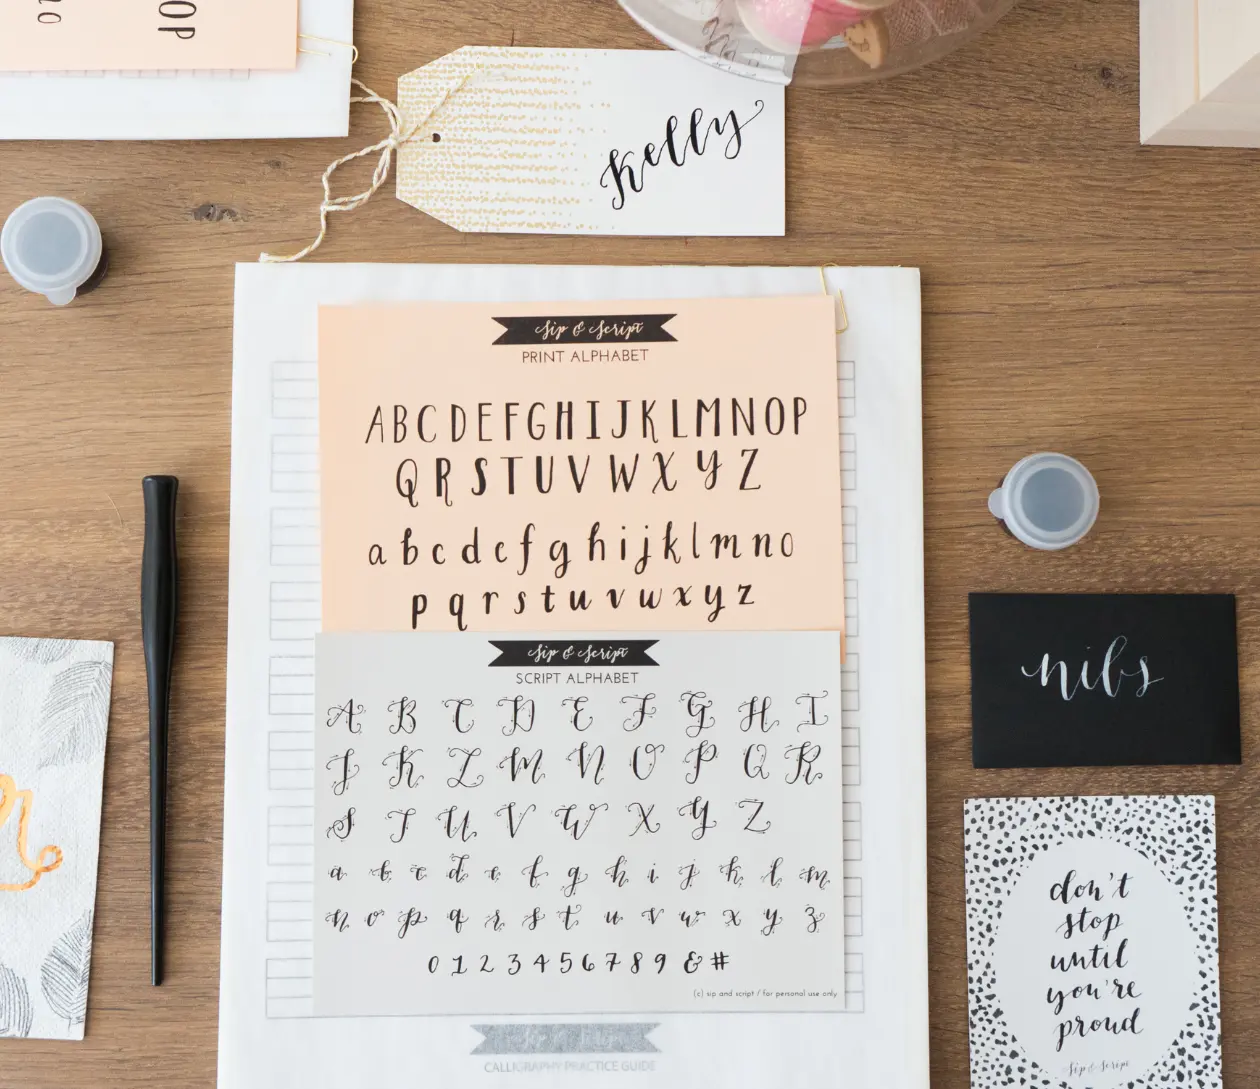 OP
no
Kelly
Sip & Script
PRINT ALPHABET
ABCDEFGHIJKLMNOP
QRSTUVWXYZ
abcdefghijklmno
pqrstuvwxyz
Sip & Script
SCRIPT ALPHABET
A B C D E F G H I
J K L M N O P Q R
S T U V W X Y Z
a b c d e f g h i j k l m
n o p q r s t u v w x y z
0 1 2 3 4 5 6 7 8 9 & #
(c) sip and script / for personal use only
CALLIGRAPHY PRACTICE GUIDE
nibs
don't
stop
until
you're
proud
Sip & Script